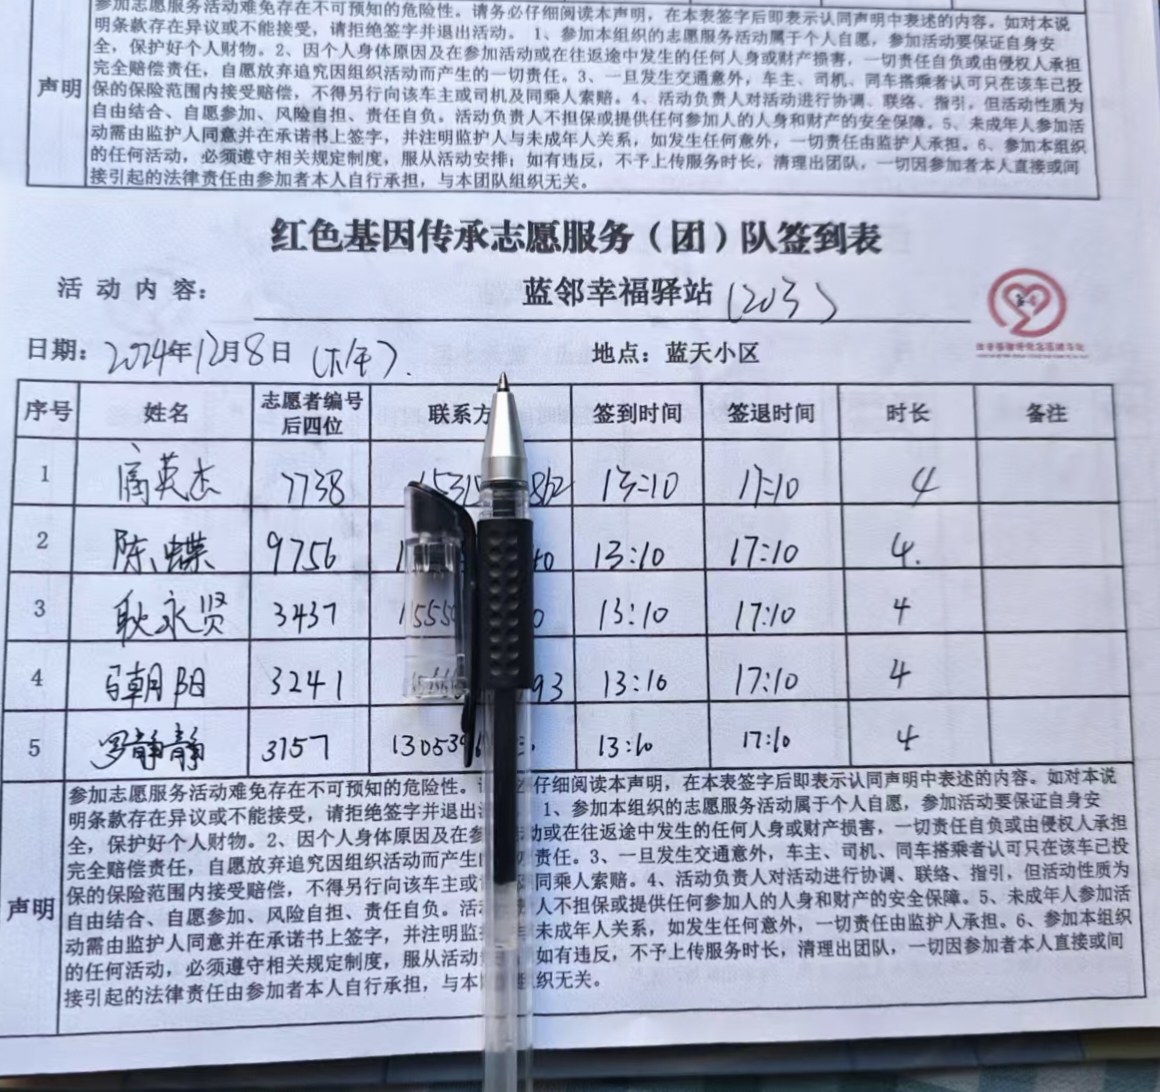 参加志愿服务活动难免存在不可预知的危险性。请务必仔细阅读本声明，在本表签字后即表示认同声明中表述的内容。如对本说
明条款存在异议或不能接受，请拒绝签字并退出活动。 1、参加本组织的志愿服务活动属于个人自愿，参加活动要保证自身安
全，保护好个人财物。2、因个人身体原因及在参加活动或在往返途中发生的任何人身或财产损害，一切责任自负或由侵权人承担
完全赔偿责任，自愿放弃追究因组织活动而产生的一切责任。3、一旦发生交通意外，车主、司机、同车搭乘者认可只在该车已投
声明 保的保险范围内接受赔偿，不得另行向该车主或司机及同乘人索赔。4、活动负责人对活动进行协调、联络、指引，但活动性质为
自由结合、自愿参加、风险自担、责任自负。活动负责人不担保或提供任何参加人的人身和财产的安全保障。5、未成年人参加活
动需由监护人同意并在承诺书上签字，并注明监护人与未成年人关系，如发生任何意外，一切责任由监护人承担。6、参加本组织
的任何活动，必须遵守相关规定制度，服从活动安排；如有违反，不予上传服务时长，清理出团队，一切因参加者本人直接或间
接引起的法律责任由参加者本人自行承担，与本团队组织无关。
红色基因传承志愿服务（团）队签到表
活动内容： 蓝邻幸福驿站（203）
日期：2024年12月8日 地点：蓝天小区
序号 姓名 志愿者编号后四位 联系方 签到时间 签退时间 时长 备注
1 英杰 7738 1531 862 13:10 17:10 4
2 陈蝶 9756 1 40 13:10 17:10 4.
3 耿永贤 3437 1555 0 13:10 17:10 4
4 马朝阳 3241 93 13:10 17:10 4
5 罗静静 3157 1305396 13:10 17:10 4
参加志愿服务活动难免存在不可预知的危险性。 仔细阅读本声明，在本表签字后即表示认同声明中表述的内容。如对本说
明条款存在异议或不能接受，请拒绝签字并退出 1、参加本组织的志愿服务活动属于个人自愿，参加活动要保证自身安
全，保护好个人财物。2、因个人身体原因及在参 动或在往返途中发生的任何人身或财产损害，一切责任自负或由侵权人承担
完全赔偿责任，自愿放弃追究因组织活动而产生 责任。3、一旦发生交通意外，车主、司机、同车搭乘者认可只在该车已投
保的保险范围内接受赔偿，不得另行向该车主或 同乘人索赔。4、活动负责人对活动进行协调、联络、指引，但活动性质为
声明 自由结合、自愿参加、风险自担、责任自负。活 人不担保或提供任何参加人的人身和财产的安全保障。5、未成年人参加活
动需由监护人同意并在承诺书上签字，并注明监 未成年人关系，如发生任何意外，一切责任由监护人承担。6、参加本组织
的任何活动，必须遵守相关规定制度，服从活动 如有违反，不予上传服务时长，清理出团队，一切因参加者本人直接或间
接引起的法律责任由参加者本人自行承担，与本 织无关。